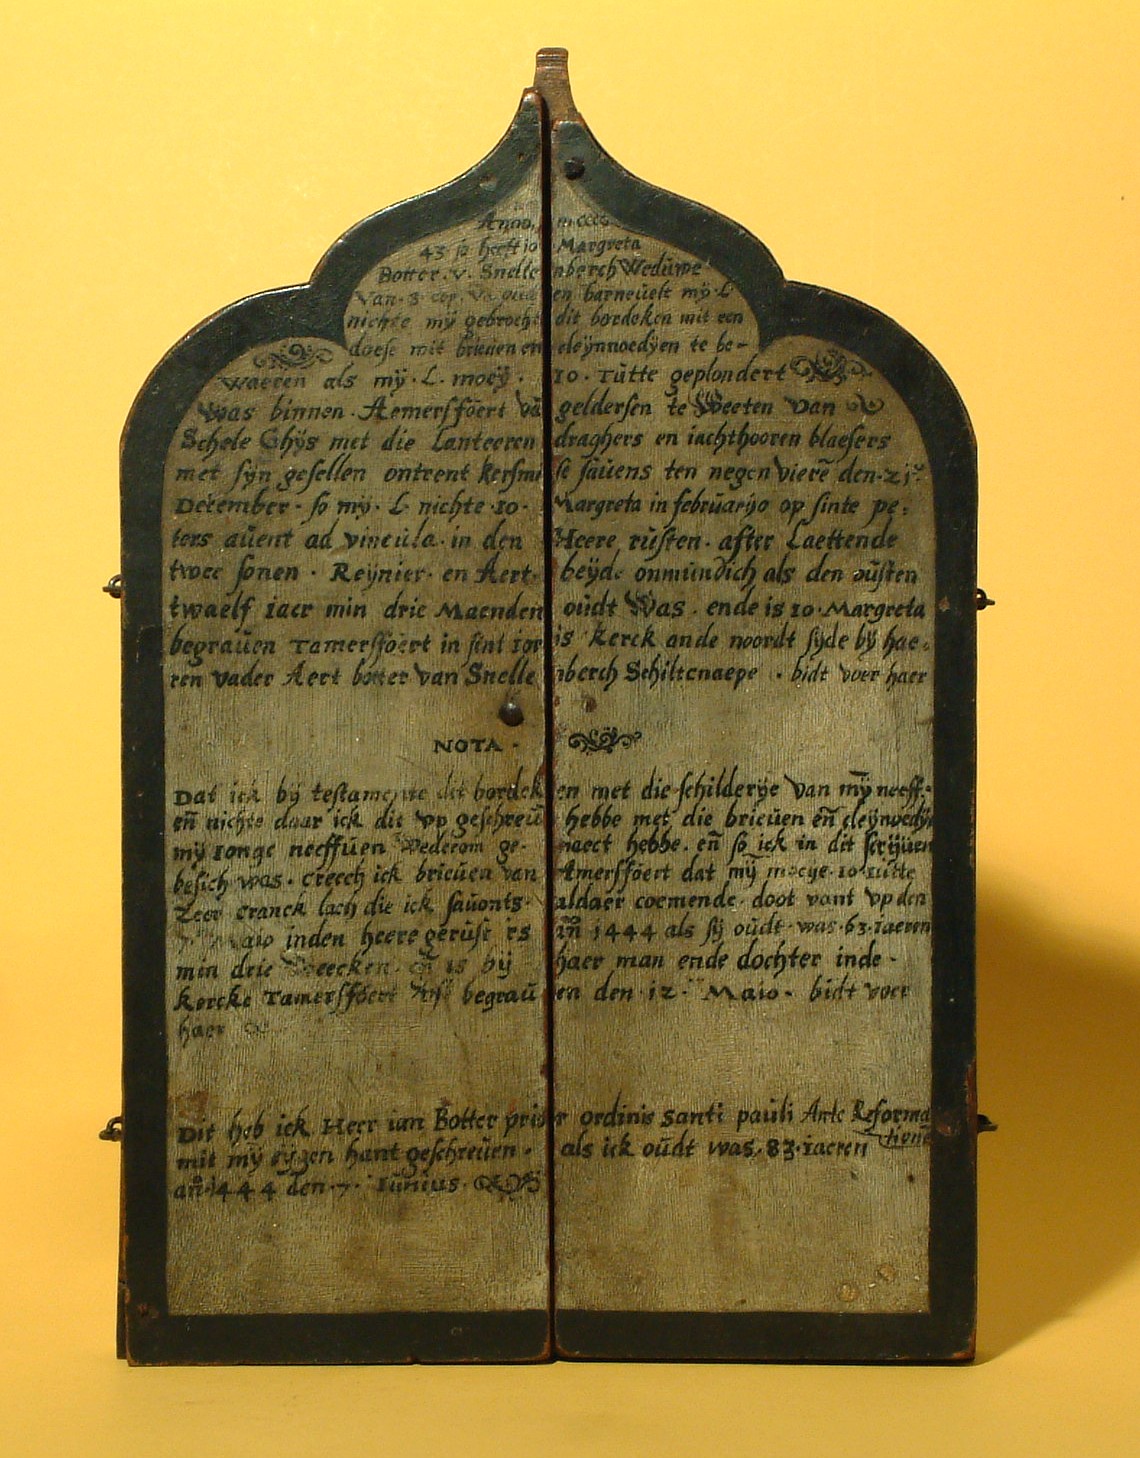 Anno, mcccc
43 so heeft io Margreta
Botter. v. Snellenberch Weduwe
van. 3 en barneuelt mÿ. L
nichte mÿ gebrocht dit bordeken mit een
doese mit brieuen en cleÿnnoedÿen te be-
waeren als mÿ. L. moeÿ. 10. Tutte geplondert
Was binnen. Aemersfoert vā geldersen te Weeten van
Schele Ghÿs met die Lanteeren draghers en iachthooren blaesers
met sÿn gesellen ontrent kersmisse sauens ten negen vierē den. 21.
December. so mÿ. L. nichte. 10. Margreta in februarÿo op sinte pe:
ters auent ad vincula. in den Heere rusten. after Laettende
twee sonen. Reÿnier. en Aert. beÿde onmundich als den ousten
twaelf iaer min drie Maenden oudt Was. ende is 10. Margreta
begrauen Tamersfoert in sint ioris kerck ande noordt sÿde bÿ hae:
ren vader Aert botter van Snellenberch Schiltcnaepe. bidt voer haer
NOTA.
Dat ick bÿ testamente dit bordeken met die schilderÿe van mÿ neeff:
en̄ nichte daar ick dit vp geschreuē hebbe met die brieuen en̄ cleÿnoedÿē
mÿ ionge neeffuen wederom ge- maect hebbe. en̄ so ick in dit scrijuen
besich was. creech ick brieuen van Amersfoert dat mÿ moeÿe. 10. Tutte
Zeer cranck lach die ick sauonts. aldaer coemende. doot vant vp den
7. Maio inden heere gerust is an̄o 1444 als sÿ oudt. was. 63. iaeren
min drie Weecken. en̄ is bÿ haer man ende dochter inde.
kercke Tamersfoert begrauen den. 12. Maio. bidt voer
haer
Dit heb ick Heer ian Botter prior ordinis santi pauli Ante Reforma
tionē
mit mÿ eÿgen hant geschreuen. als ick oudt was. 83. iaeren
an̄o. 1444 den. 7. iunius.